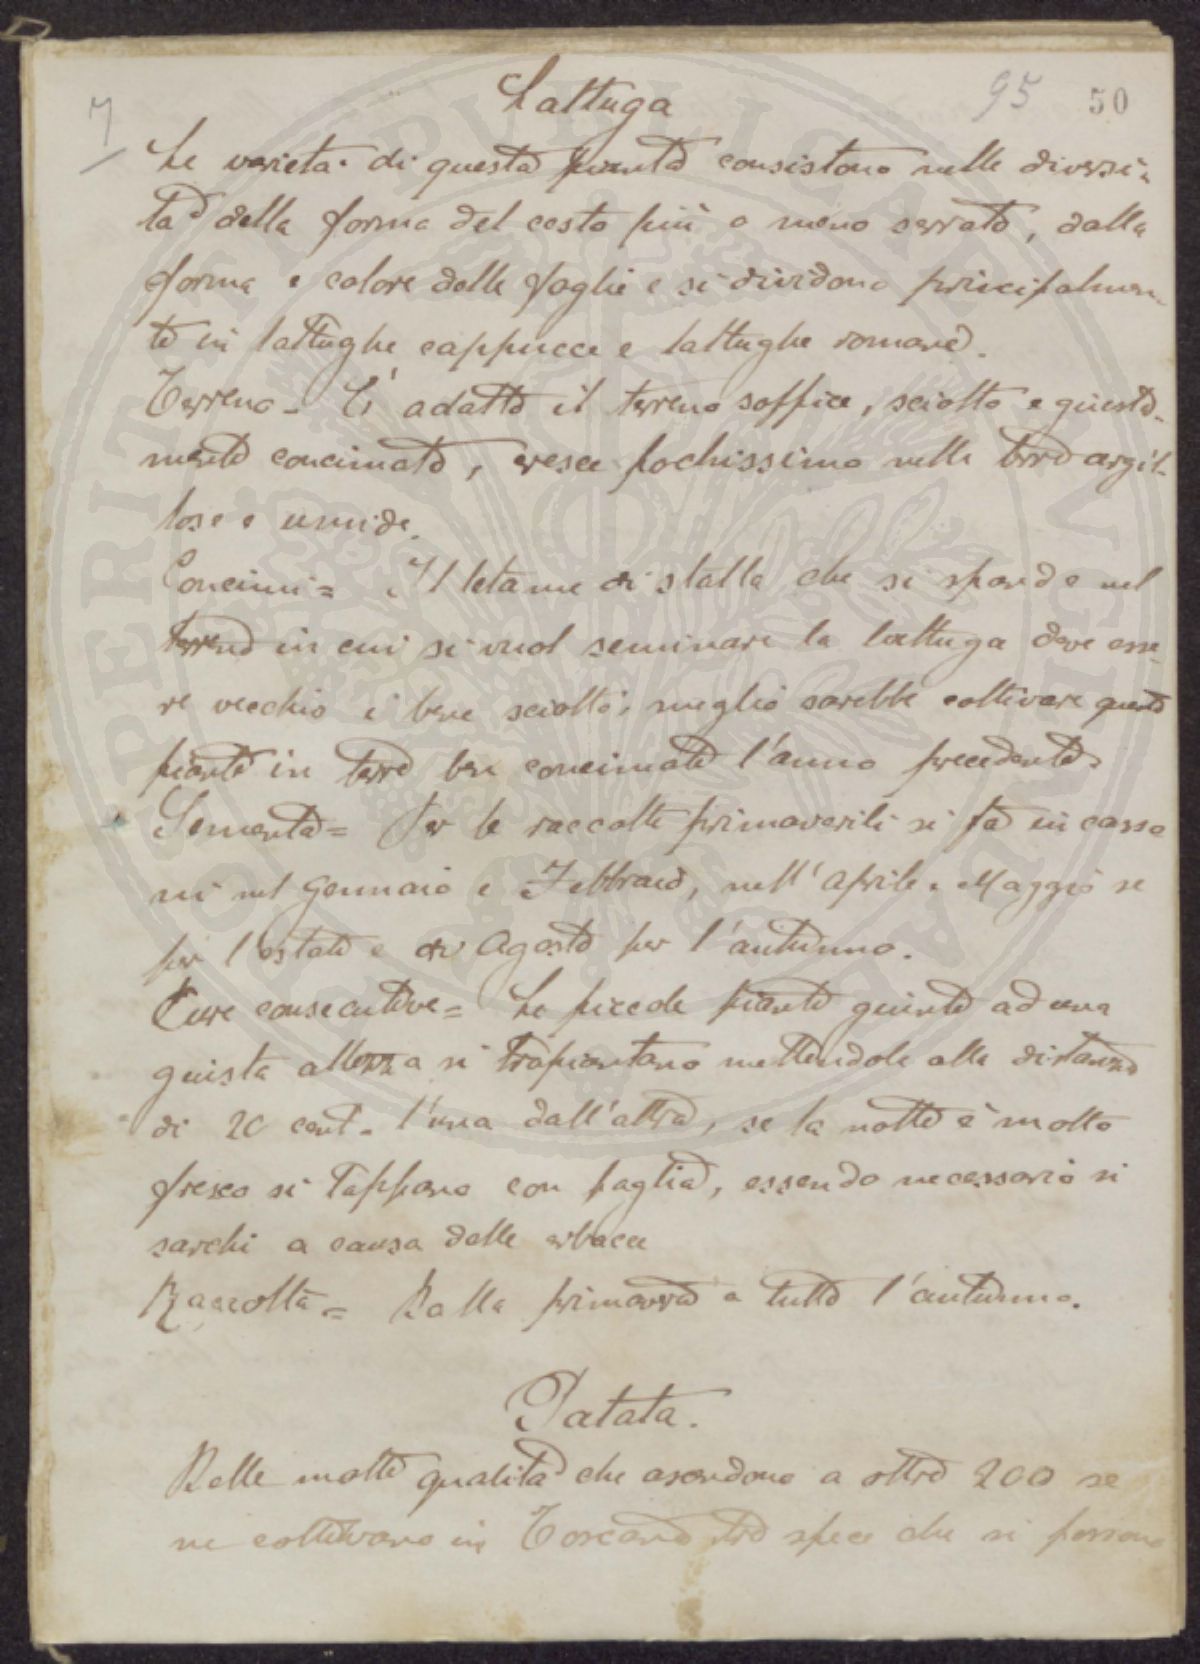 7
95
50
Lattuga
Le varietà di questa pianta consistono nelle diversi-
tà della forma del cesto più o meno serrato, dalla
forma e colore delle foglie e si dividono principalmen-
te in lattughe cappucce e lattughe romane.
Terreno - È adatto il terreno soffice, sciolto e giusta-
mente concimato, cresce pochissimo nelle terre argil-
lose e umide.
Concimi = Il letame di stalla che si spande nel
terreno in cui si vuol seminare la lattuga deve esse-
re vecchio e bene sciolto, meglio sarebbe coltivare queste
piante in terre ben concimate l'anno precedente.
Sementa = Per le raccolte primaverili si fa in casso
ni nel Gennaio e Febbraio, nell'aprile e Maggio se
per l'estate e Agosto per l'autunno.
Cure consecutive = Le piccole piante giunte ad una
giusta altezza si trapiantano mettendole alla distanza
di 20 cent. l'una dall'altra, se la notte è molto
fresco si tappano con paglia, essendo necessario si
sarchi a causa delle erbacce
Raccolta = Dalla primavera a tutto l'autunno.
Patata.
Delle molte qualità che ascendono a oltre 200 se
ne coltivano in Toscana tre spece che si possono